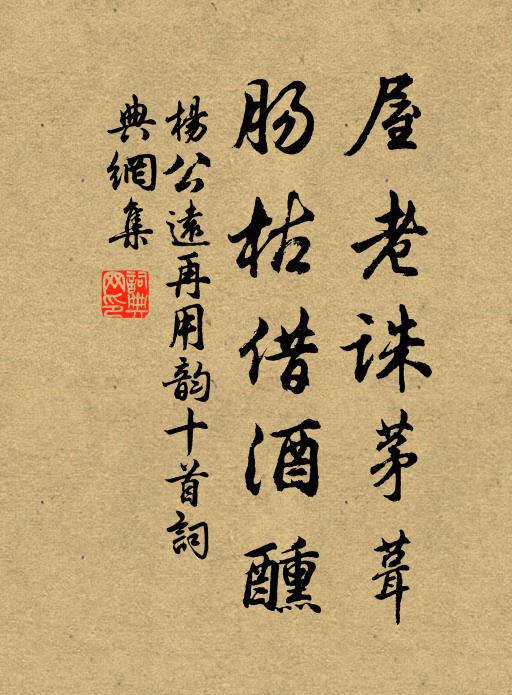 屋老誅茅葺
肠枯借酒醺
楊公遠再用韵十首詞
典網集
詞典网印